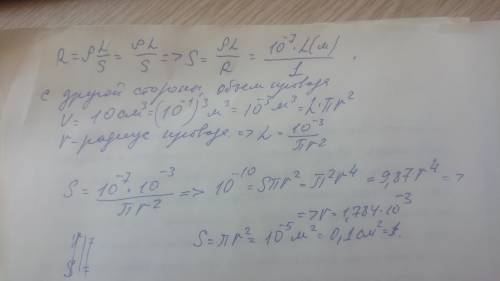 R = ρ L/S = ρL/S => S = ρL/R = 10⁻⁷·L(м)/1 .
с другой стороны, объем провода
V = 10 см³ = (10⁻¹)³ м³ = 10⁻³ м³ = L·πr²
r - радиус провода => L = 10⁻³/πr²
S = 10⁻⁷·10⁻³/πr² => 10⁻¹⁰ = Sπr² = π²r⁴ = 9,87r⁴ =>
=> r = 1,784·10⁻³
S = πr² = 10⁻⁵ м² = 0,1 см² =